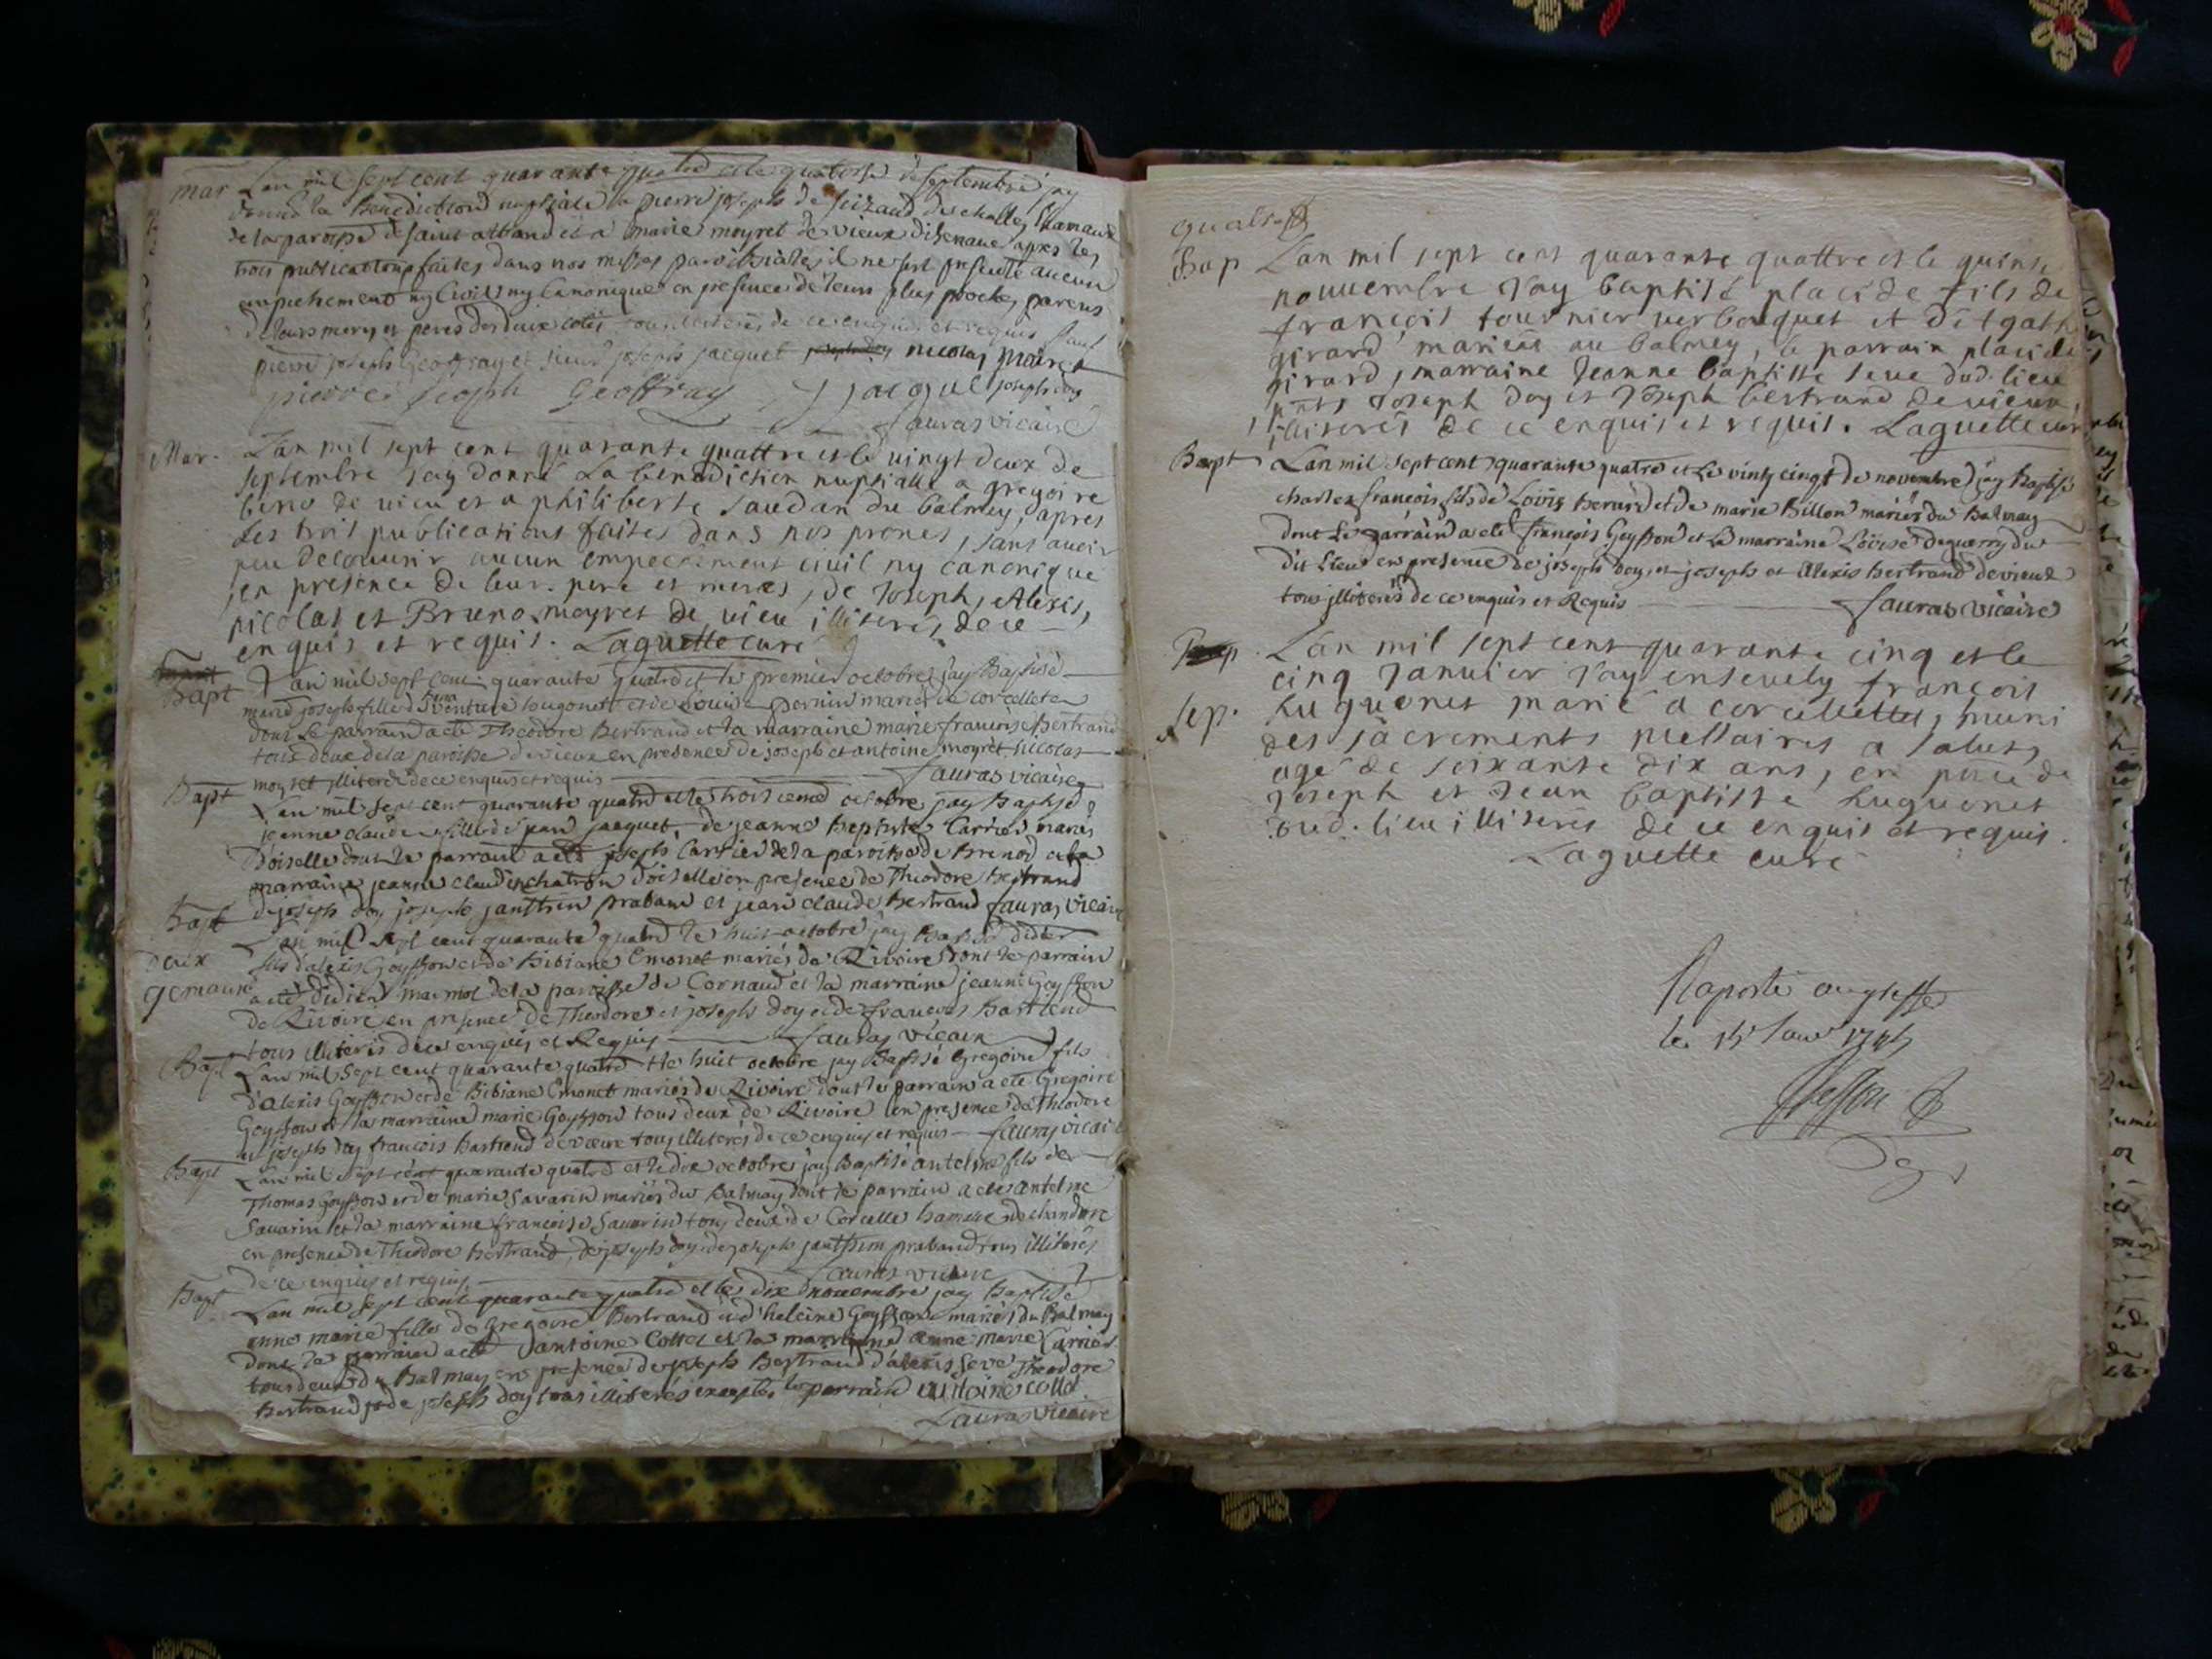 mar Lan mil sept cent quarante quatre et le quatorse de septembre jay
donné la Benediction nuptiale a pierre joseph de
de la paroisse de saint et a marie moyret de vieux disenave apres les
trois publications faites dans nos messes paroissiales il ne sest presenté aucun
empechement ny Civil ny Canonique en presence de leurs plus proches parens
de leurs meres et peres des deux cotés de ce enquis et requis sauf
pierre joseph Geoffray et sieur joseph jacquet nicolas moiret
pierre joseph Geoffray J jacquet joseph doy
Sauras vicaire
Mar. Lan mil sept cent quarante quattre et le vingt deux de
septembre Jay donné La benediction nuptialle a gregoire
de vieu et a philiberte Saudan du balmey, apres
Les trois publications faites dans nos prones, sans avoir
peu decouvrir aucun empechement civil ny canonique
en presence de leur. pere et meres, de Joseph, Alexis,
nicolas et Bruno moyret de vieu illiterés de ce
enquis et requis. Laguette curé
Bapt Lan mil sept cent quarante quatre et le premier octobre jay Baptisé
marie joseph fille de Bonaventure hugonet et de Louise pernin mariés de corcelete
dont Le parrain a eté Theodore Bertrand et la marraine marie francoise Bertrand
tous deux de la paroisse de vieux en presence de joseph et antoine moyret nicolas
moyret illiteré de ce enquis et requis Sauras vicaire
Bapt Lan mil sept cent quarante quatre et le troisieme octobre jay Baptisé
jeanne claude fille de jean jacquet, de jeanne baptiste Carrier mariés
Doiselle dont le parrain a eté joseph Carrier de la paroisse de Brenod et la
marraine jeanne claudine chatron doiselle en presence de Theodore Bertrand
de joseph doy joseph janthen praband et jean claude bertrand Sauras vicaire
Bapt Lan mil sept cent quarante quatre le huit octobre jay Baptisé didier
deux fils dalexis Goyffon et de Bibiane Emonet mariés de Rivoire dont le parrain
gemaux a eté didier marmot de la paroisse de Cornaud et la marraine jeanne Goyffon
de Rivoire en presence de Theodore et joseph doy et de francois Bartrend
tous illiterés de ce enquis et Requis Sauras vicaire
Bapt Lan mil sept cent quarante quatre et le huit octobre jay Baptisé Gregoire fils
dalexis Goyffon et de Bibiane Emonet mariés de Rivoire dont le parrain a eté Gregoire
Goyffon et la marraine marie Goyffon tous deux de Rivoire en presence de Theodore
et joseph doy francois Bartrend de tous illiterés de ce enquis et requis Sauras vicaire
Bapt Lan mil sept cent quarante quatre et le dix octobre jay Baptisé antelme fils de
Thomas Goyffon et de marie Savarin mariés du Balmay dont le parrain a eté antelme
Savarin et la marraine francoise Savarin tous deux de Corcelle hameau de chandore
en presence de Theodore bertrand, de joseph doy de joseph janthen praband tous illiterés
de ce enquis et requis Sauras vicaire
Bapt Lan mil sept cent quarante quatre et le dix novembre jay Baptisé
anne marie fille de Gregoire Bertrand et d'heleine Goyffon mariés du Balmay
dont le parrain a eté antoine Collet et la marraine anne marie Carrier
tous deux du Balmay en presence de joseph Bertrand d'alexis seve Theodore
Bertrand et de joseph doy tous illiterés excepté le parrain antoine collet
Sauras vicaire
Bap Lan mil sept cent quarante quattre et le quinse
nouvembre Jay baptisé placide fils de
francois tournier verbouquet et
girard mariés au balmey, le parrain placide
girard, marraine Jeanne baptiste seve dud. lieu
pnts Joseph Doy et Joseph bertrand de vieux,
illiterés de ce enquis et requis. Laguette curé
Bapt Lan mil sept cent quarante quatre et Le vintz cinq de novembre jay Baptisé
charles francois fils de Loüis berurd et de marie Billon mariés du Balmay
dont Le parrain a eté françois Goyffon et La marraine Loüise deguerry du
dit Lieu en presence de joseph doy, et joseph et Alexis bertrand de vieux
tous illiterés de ce enquis et Requis Sauras vicaire
Lan mil sept cent quarante cinq et le
cinq Janvier Jay ensevely françois
Sep. huguonet marié a corcellette, muni
des sacrements necessaires a salut,
agé de soixante dix ans, en pnce de
Joseph et Jean baptiste huguonet
dud. lieu illiterés de ce enquis et requis.
Laguette curé
Raporté au greffe
le 15 janv 1745